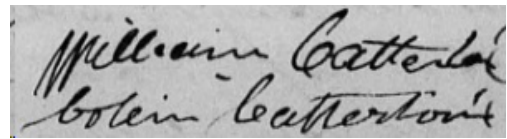 William Catterton
Colein Catterton